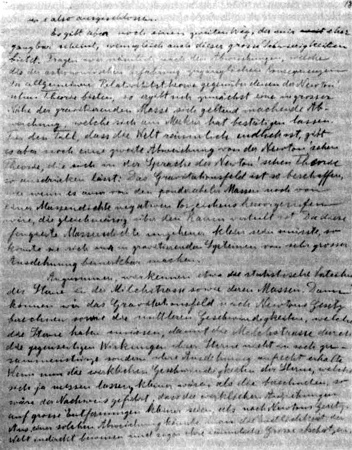 also ausgeschlossen.
Es gibt aber noch einen zweiten Weg, der mir
gangbar scheint, wenngleich auch dieser grosse Schwierigkeiten
bietet. Fragen wir nämlich nach den Abweichungen, welche
der astronomischen Erfahrung Konsequenzen
der allgemeinen Relativitätstheorie gegenüber denen der Newton'
schen Theorie bieten, so ergibt sich zunächst eine in grosser
Nähe der gravitierenden Masse sich geltend machende Ab-
weichung, welche sich am Merkur hat bestätigen lassen.
Für den Fall, dass die Welt räumlich endlich ist, gibt
es aber noch eine zweite Abweichung von der Newton'schen
Theorie, die sich in der Sprache der Newton'schen Theorie
so ausdrücken lässt: Das Gravitationsfeld ist so beschaffen,
wie wenn es ausser von den ponderablen Massen noch von
einer Massendichte negativen Vorzeichens hervorgerufen
wäre, die gleichmässig über den Raum verteilt ist. Da diese
fingierte Massendichte ungeheuer klein sein müsste, so
könnte sie sich nur in gravitierenden Systemen von sehr grosser
Ausdehnung bemerkbar machen.
Angenommen, wir kennen etwa die statistische Verteilung
der Sterne in der Milchstrasse sowie deren Massen. Dann
können wir das Gravitationsfeld nach Newtons Gesetz
berechnen sowie die mittleren Geschwindigkeiten, welche
die Sterne haben müssen, damit die Milchstrasse durch
die gegenseitigen Wirkungen ihrer Sterne nicht in sich zu-
sammenstürze, sondern ihre Ausdehnung aufrecht erhalte.
Wenn nun die wirklichen Geschwindigkeiten der Sterne, welche
sich ja messen lassen, kleiner wären als die berechneten, so
wäre der Nachweis geführt, dass die wirklichen Anziehungen
auf grosse Entfernungen kleiner seien als nach Newtons Gesetz.
Aus einer solchen Abweichung könnte man die Endlichkeit der
Welt indirekt beweisen und sogar ihre räumliche Grösse abschätzen.